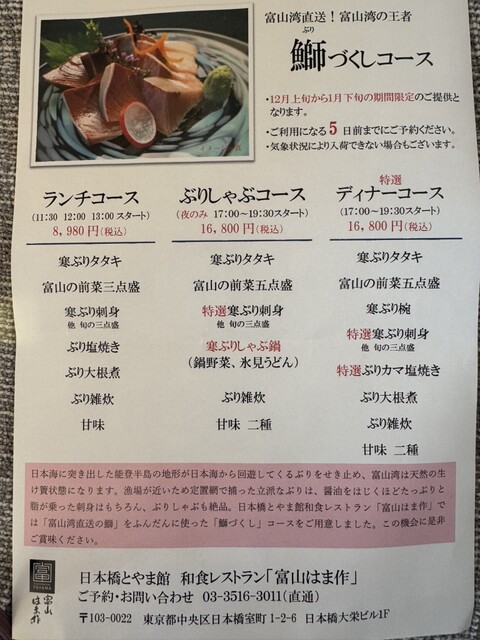 富山湾直送！富山湾の王者
ぶり
鰤づくしコース
・12月上旬から1月下旬の期間限定のご提供と
なります。
・ご利用になる 5 日前までにご予約ください。
・気象状況により入荷できない場合もございます。
イメージ写真
ランチコース
(11:30 12:00 13:00 スタート)
8,980円(税込)
寒ぶりタタキ
富山の前菜三点盛
寒ぶり刺身
他 旬の三点盛
ぶり塩焼き
ぶり大根煮
ぶり雑炊
甘味
ぶりしゃぶコース
(夜のみ 17:00～19:30スタート)
16,800円(税込)
寒ぶりタタキ
富山の前菜五点盛
特選寒ぶり刺身
他 旬の三点盛
寒ぶりしゃぶ鍋
(鍋野菜、氷見うどん)
ぶり雑炊
甘味 二種
特選
ディナーコース
(17:00～19:30スタート)
16,800円(税込)
寒ぶりタタキ
富山の前菜五点盛
寒ぶり椀
特選寒ぶり刺身
他 旬の三点盛
特選ぶりカマ塩焼き
ぶり大根煮
ぶり雑炊
甘味 二種
日本海に突き出した能登半島の地形が日本海から回遊してくるぶりをせき止め、富山湾は天然の生
け簀状態になります。漁場が近いため定置網で捕った立派なぶりは、醤油をはじくほどたっぷりと
脂が乗った刺身はもちろん、ぶりしゃぶも絶品。日本橋とやま館和食レストラン「富山はま作」
では「富山湾直送の鰤」をふんだんに使った「鰤づくし」コースをご用意しました。この機会に是非
ご賞味ください。
富
TOYAMA
富山
はま作
日本橋とやま館 和食レストラン「富山はま作」
ご予約・お問い合わせ 03-3516-3011(直通)
〒103-0022 東京都中央区日本橋室町 1-2-6 日本橋大栄ビル1F